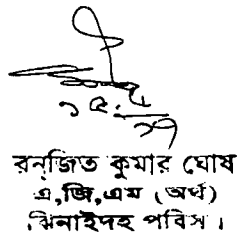 ১৫.
রনজিত কুমার ঘোষ
এ,জি,এম (অর্থ)
ঝিনাইদহ পবিস।